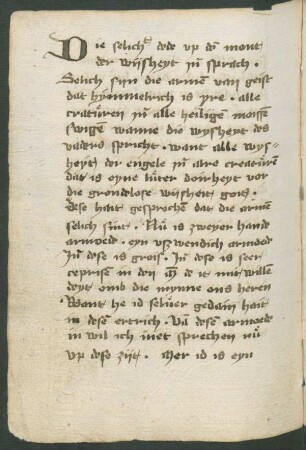 Die selich͛ dede vp dē mont
der wijsheyt iñ sprach.
Selich sijn die armen van geist
dat hymmelrich is yre. alle
cratuͤren iñ alle heiligen moissen
swigen wanne die wysheyt des
vaders spricht. want alle wys=
heyt der engele iñ alre creatuͤren
dat is eyne luter doirheyt vor
die grondelose wijsheit gotz.
dese hait gesprochen dat die armen
selich sint. Nuͦ is zweyer hande
armoede. eyn vszwendich armoede
iñ dese is grois. iñ dese is seer
ceprisen in den mē de it mit willen
doyt vmb die mynne ons heren
Want he id seluer gedain hait
in desem ertrich. Vā desem armoede
in wil ich niet sprechen nuͦ
vp dese zijt. Mer id is eyn